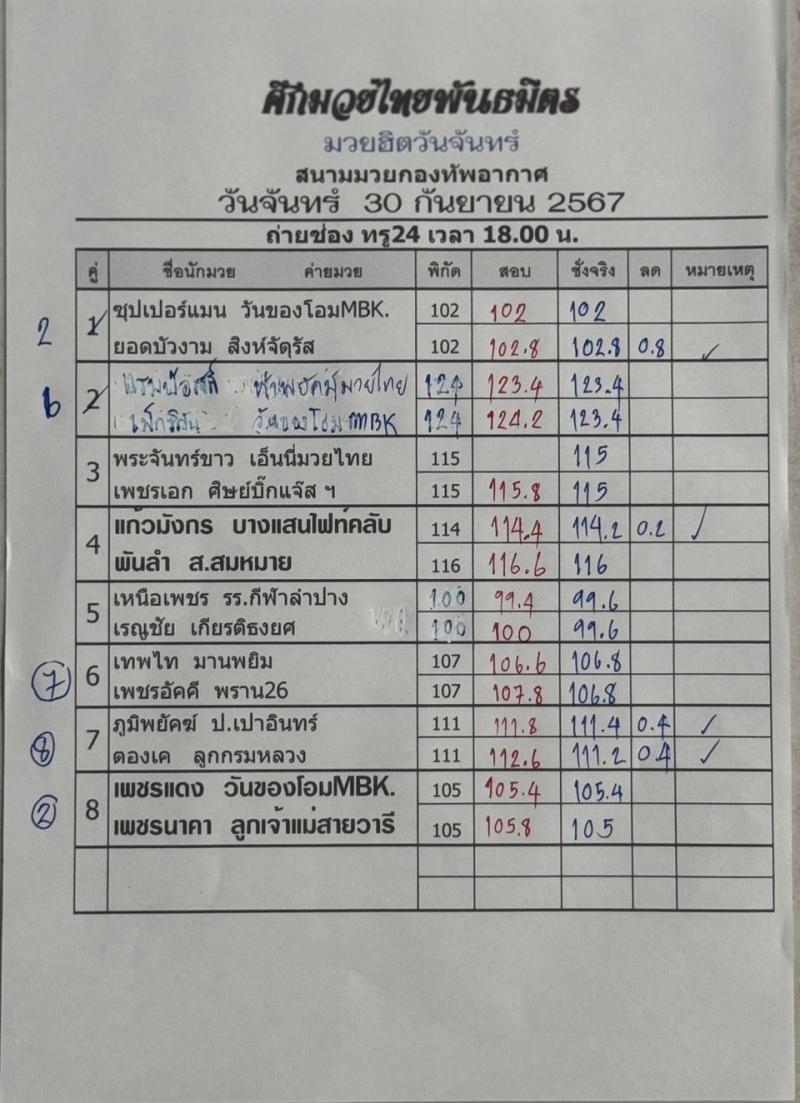 ศึกมวยไทยพันธมิตร
มวยฮิตวันจันทร์
สนามมวยกองทัพอากาศ
วันจันทร์ 30 กันยายน 2567
ถ่ายช่อง ทรู24 เวลา 18.00 น.
คู่ ชื่อนักมวย ค่ายมวย พิกัด สอบ ชั่งจริง ลด หมายเหตุ
2 1 ซุปเปอร์แมน วันของโอมMBK. 102 102 102
ยอดบัวงาม สิงห์จัตุรัส 102 102.8 102.8 0.8 ✓
6 2 124 123.4 123.4
วันของโอม MBK 124 124.2 123.4
3 พระจันทร์ขาว เอ็นนี่มวยไทย 115 115
เพชรเอก ศิษย์บิ๊กแจ๊ส ฯ 115 115.8 115
4 แก้วมังกร บางแสนไฟท์คลับ 114 114.4 114.2 0.2 ✓
พันลำ ส.สมหมาย 116 116.6 116
5 เหนือเพชร รร.กีฬาลำปาง 100 99.4 99.6
เรณูชัย เกียรติธงยศ 100 100 99.6
7 6 เทพไท มานพยิม 107 106.6 106.8
เพชรอัคคี พราน26 107 107.8 106.8
8 7 ภูมิพยัคฆ์ ป.เปาอินทร์ 111 111.8 111.4 0.4 ✓
ตองเค ลูกกรมหลวง 111 112.6 111.2 0.4 ✓
2 8 เพชรแดง วันของโอมMBK. 105 105.4 105.4
เพชรนาคา ลูกเจ้าแม่สายวารี 105 105.8 105